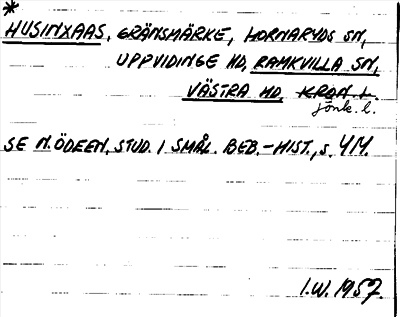 *
HUSINXAAS, GRÄNSMÄRKE, HORNARYDS SN,
UPPVIDINGE HD, RAMKVILLA SN,
VÄSTRA HD, KRON. L.
jönk. l.
SE N. ÖDEEN, STUD. I SMÅL. BEB.-HIST., s. 414.
I.W. 1957.